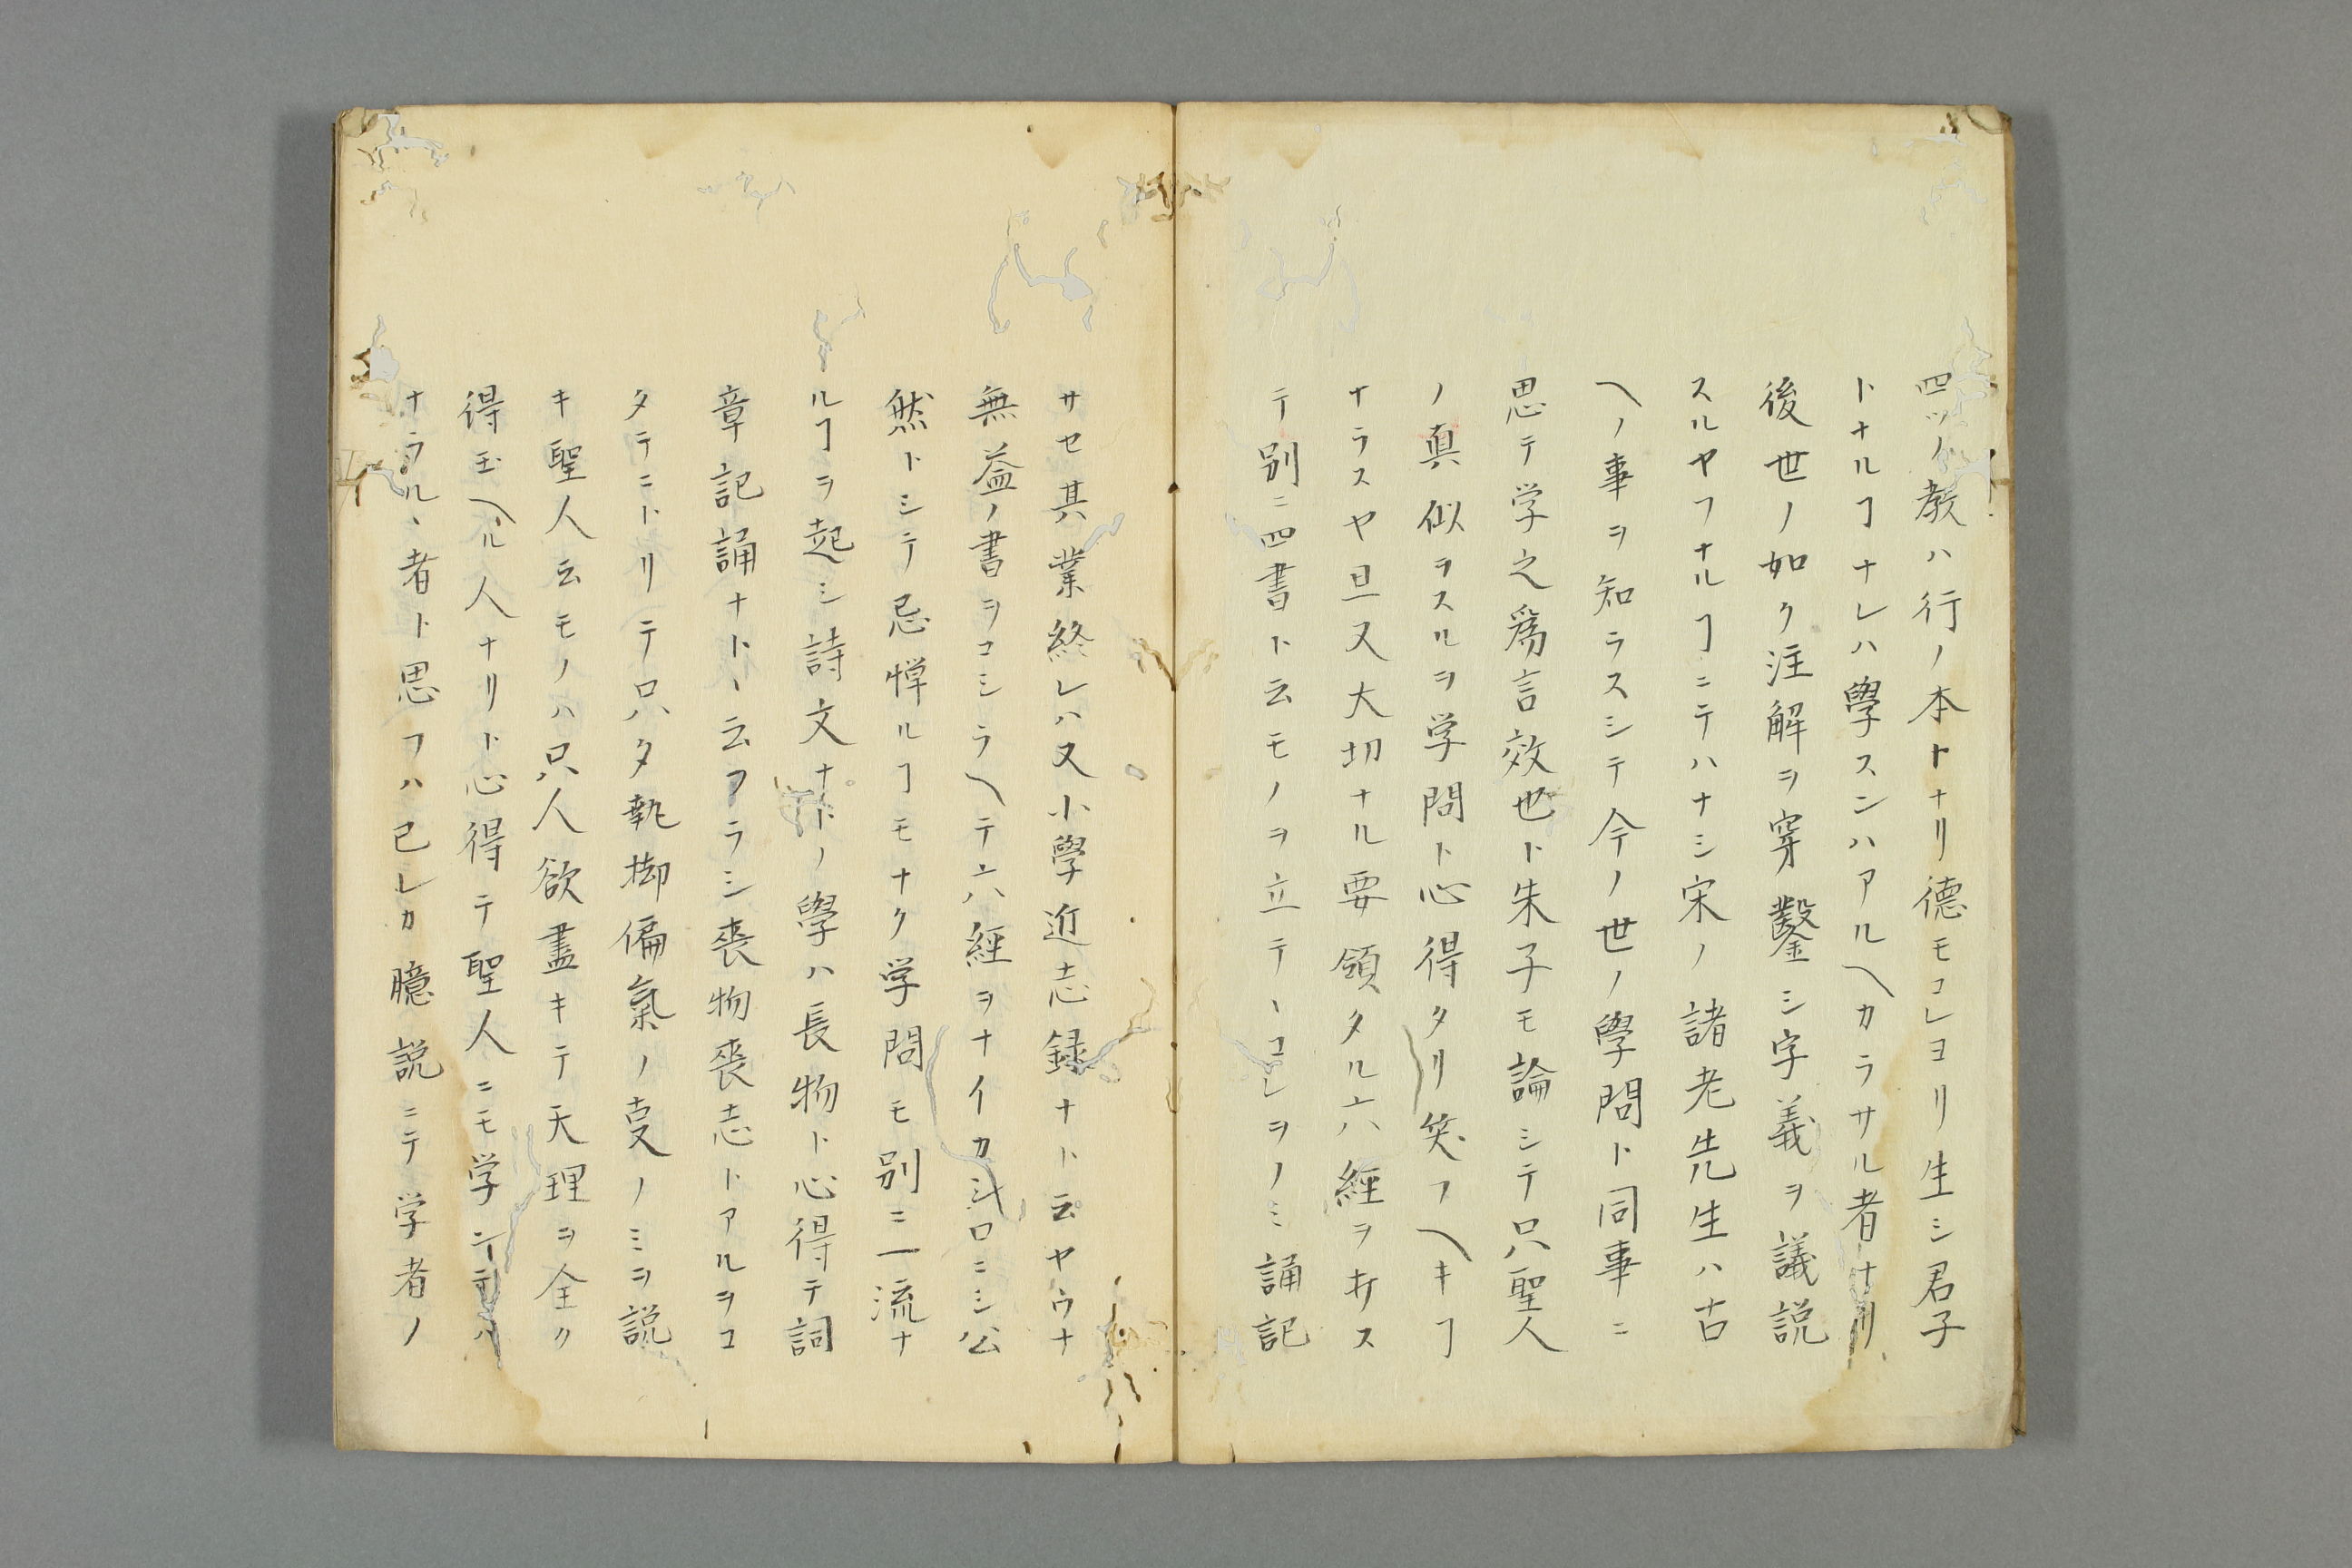 四ツノ教ハ行ノ本トナリ德モコレヨリ生シ君子
トナルヿナレハ學スンハアルヘカラサル者ナリ
後世ノ如ク注解ヲ穿鑿シ字義ヲ議説
スルヤフナルヿニテハナシ宋ノ諸老先生ハ古
ヘノ事ヲ知ラスシテ今ノ世ノ學問ト同事ニ
思テ学之爲言效也ト朱子モ論シテ只聖人
ノ真似ヲスルヲ学問ト心得タリ笑フヘキヿ
ナラスヤ且又大切ナル要領タル六經ヲサス
テ別ニ四書ト云モノヲ立テヽコレヲノミ誦記
サセ其業終レハ又小學近志録ナト云ヤウナ
無益ノ書ヲコシラヘテ六經ヲナイカシロニシ公
然トシテ忌憚ルヿモナク学問モ別ニ一流ナ
ルヿヲ起シ詩文ナトノ學ハ長物ト心得テ詞
章記誦ナトヽ云フラシ喪物喪志トアルヲコ
タテニトリテ只ハタ執拗偏氣ノ㕝ノミヲ説
キ聖人云モノハ只人欲盡キテ天理ヲ全ク
得玉ヘル人ナリト心得テ聖人ニモ学ンテハ
ナラルヽ者ト思フハ己レカ臆説ニテ学者ノ